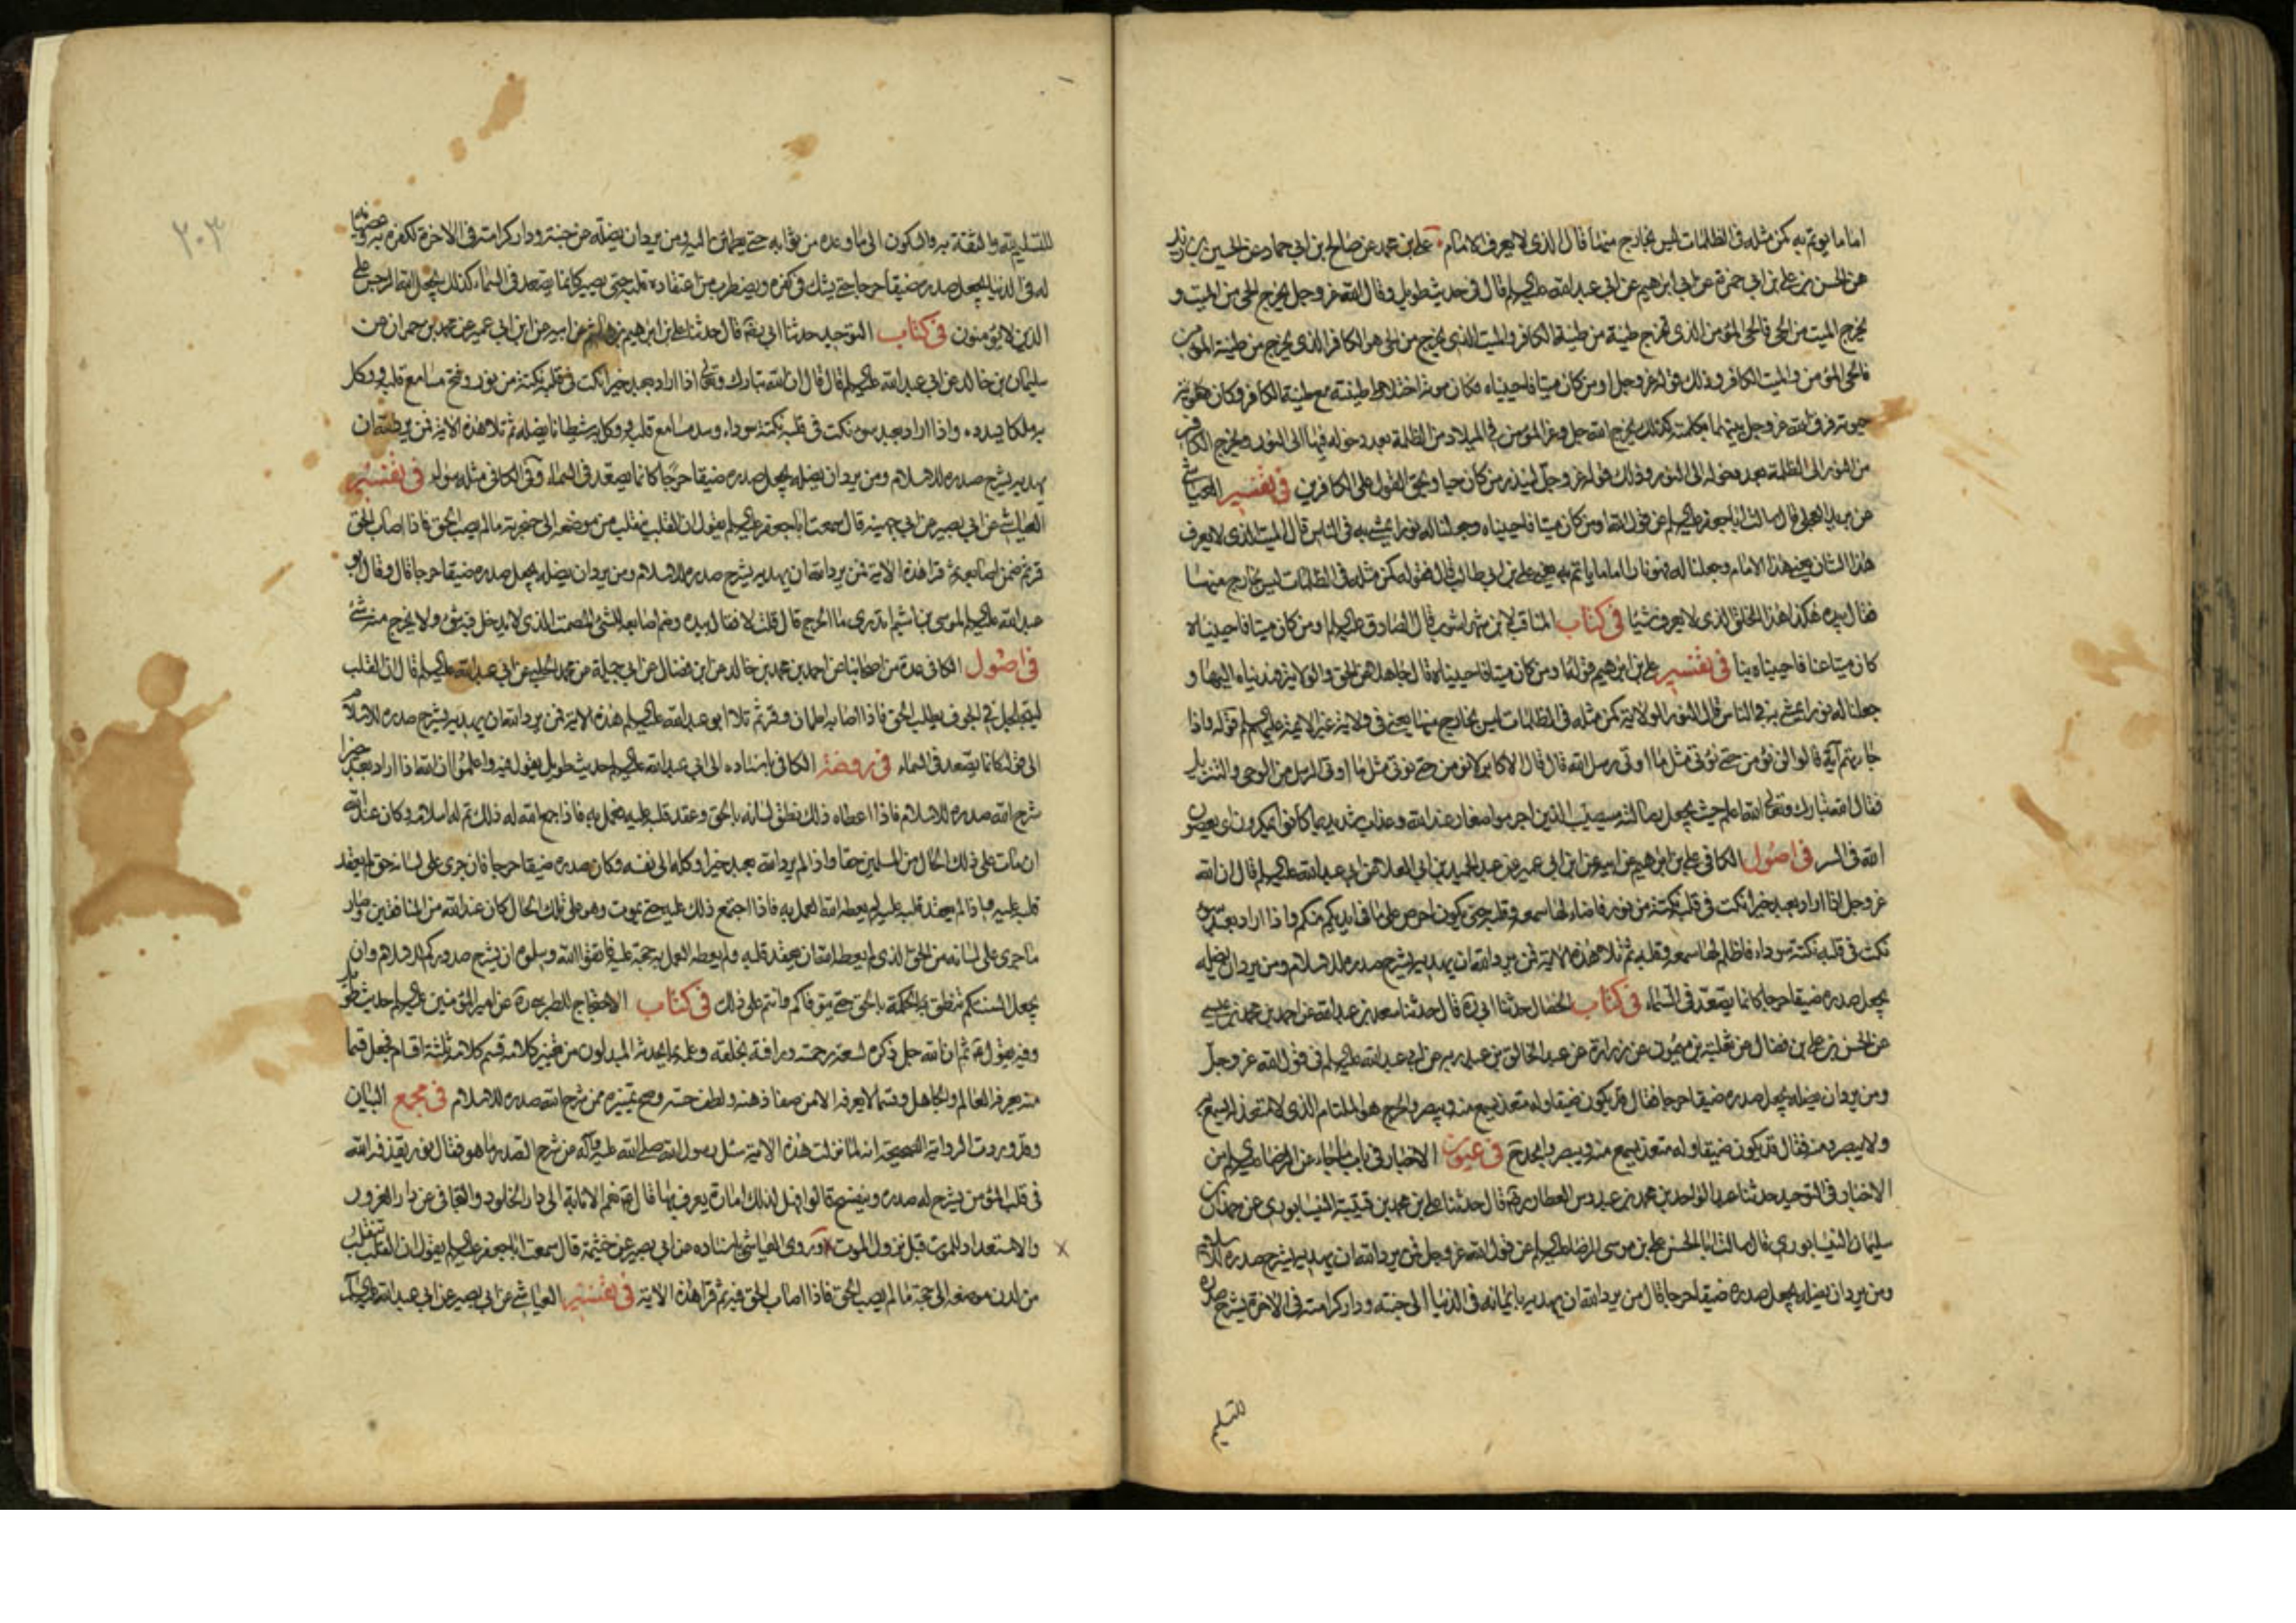 اماما يوتم به كمن مثله في الظلمات ليس بخارج منها قال الذي لا يعرف الامام علي بن محمد عن صالح بن ابي حماد عن الحسين بن يزيد
عن الحسن بن علي بن ابي حمزة عن ابراهيم عن ابي عبد الله عليه السلم قال في حديث طويل وقال الله عز وجل يخرج الحي من الميت و
يخرج الميت من الحي فالحي المؤمن الذي تخرج طينة من طينة الكافر والميت الذي يخرج من الحي هو الكافر الذي يخرج من طينة المؤمن
فالحي المؤمن والميت الكافر وذلك قوله عز وجل اومن كان ميتا فاحييناه فكان موته اختلاط طينته مع طينة الكافر وكان
حيوته فرق الله عز وجل بينهما بكلمته كذلك يخرج الله جل وعز المؤمن في الميلاد من الظلمة بعد دخوله فيها الى النور ويخرج الكافر
من النور الى الظلمة بعد دخوله الى النور وذلك قوله عز وجل لينذر من كان حيا ويحق القول على الكافرين في تفسير العياشي
عن بريد العجلي قال سالت ابا جعفر عليه السلم عن قول الله اومن كان ميتا فاحييناه وجعلنا له نورا يمشي به في الناس قال الميت الذي لا يعرف
هذا الشان يعني هذا الامام وجعلنا له نورا اماما ياتم به يعني علي بن ابي طالب قلت فقوله كمن مثله في الظلمات ليس بخارج منها
فقال بيده هكذا هذا الخلق الذي لا يعرف شيئا في كتاب المناقب لابن شهراشوب قال الصادق عليه السلم اومن كان ميتا فاحييناه
كان ميتا عنا فاحييناه بنا في تفسير علي بن ابراهيم قوله اومن كان ميتا فاحييناه قال جاهلا عن الحق والولاية فهديناه اليها و
جعلنا له نورا يمشي به في الناس قال النور الولاية كمن مثله في الظلمات ليس بخارج منها يعني في ولاية غير الائمة عليهم السلم قوله واذا
جاءتهم آية قالوا لن نؤمن حتى نؤتى مثل ما اوتي رسل الله قال قال الاكابر لن نؤمن حتى نؤتى مثل ما اوتي الرسل من الوحي والتنزيل
فقال الله تبارك وتعالى الله اعلم حيث يجعل رسالته سيصيب الذين اجرموا صغار عند الله وعذاب شديد بما كانوا يمكرون اي يعصون
الله في السر في اصول الكافي علي بن ابراهيم عن ابيه عن ابن ابي عمير عن عبد الحميد بن ابي العلاء عن ابي عبد الله عليه السلم قال ان الله
عز وجل اذا اراد بعبد خيرا نكت في قلبه نكتة من نور فاضاء لها سمعه وقلبه حتى يكون احرص على ما في ايديكم منكم واذا اراد بعبد سوء
نكت في قلبه نكتة سوداء فاظلم لها سمعه وقلبه ثم تلا هذه الآية فمن يرد الله ان يهديه يشرح صدره للاسلام ومن يرد ان يضله
يجعل صدره ضيقا حرجا كانما يصعد في السماء في كتاب الخصال حدثنا ابي ره قال حدثنا سعد بن عبد الله عن احمد بن محمد بن عيسى
عن الحسن بن علي بن فضال عن ثعلبة بن ميمون عن زرارة عن عبد الخالق بن عبد ربه عن ابي عبد الله عليه السلم في قول الله عز وجل
ومن يرد ان يضله يجعل صدره ضيقا حرجا فقال قد يكون ضيقا وله منفذ يسمع منه ويبصر والحرج هو الملتام الذي لا منفذ له يسمع
ولا يبصر منه فقال قد يكون ضيقا وله منفذ يسمع منه ويبصر في عيون الاخبار في باب ما جاء عن الرضا عليه السلم من
الاخبار في التوحيد حدثنا عبد الواحد بن محمد بن عبدوس العطار قال حدثنا علي بن محمد بن قتيبة النيسابوري عن حمدان بن
سليمان النيسابوري قال سالت ابا الحسن علي بن موسى الرضا عليه السلم عن قول الله عز وجل فمن يرد الله ان يهديه يشرح صدره للاسلام
ومن يرد ان يضله يجعل صدره ضيقا حرجا قال من يرد الله ان يهديه بايمانه في الدنيا الى جنته ودار كرامته في الاخرة يشرح صدره
للتسليم
٢٠٣
للتسليم لله والثقة به والسكون الى ما وعده من ثوابه حتى يطمئن اليه ومن يرد ان يضله عن جنته ودار كرامته في الاخرة لكفره به وعصيانه
له في الدنيا يجعل صدره ضيقا حرجا حتى يشك في كفره ويضطرب من اعتقاده قلبه حتى يصير كانما يصعد في السماء كذلك يجعل الله الرجس على
الذين لا يؤمنون في كتاب التوحيد حدثنا ابي ره قال حدثنا علي بن ابراهيم بن هاشم عن ابيه عن ابن ابي عمير عن محمد بن حمران عن
سليمان بن خالد عن ابي عبد الله عليه السلم قال قال ان الله تبارك وتعالى اذا اراد بعبد خيرا نكت في قلبه نكتة من نور وفتح مسامع قلبه ووكل
به ملكا يسدده واذا اراد بعبد سوء نكت في قلبه نكتة سوداء وسد مسامع قلبه ووكل به شيطانا يضله ثم تلا هذه الاية فمن يرد الله ان
يهديه يشرح صدره للاسلام ومن يرد ان يضله يجعل صدره ضيقا حرجا كانما يصعد في السماء وفي الكافي مثله سواء في تفسير
العياشي عن ابي بصير عن ابي جميلة قال سمعت ابا جعفر عليه السلم يقول ان القلب ينقلب من موضعه الى حنجرته ما لم يصب الحق فاذا اصاب الحق
قر ثم ضم اصابعه ثم قرا هذه الاية فمن يرد الله ان يهديه يشرح صدره للاسلام ومن يرد ان يضله يجعل صدره ضيقا حرجا قال وقال ابو
عبد الله عليه السلم لموسى بن اشيم اتدري ما الحرج قال قلت لا فقال بيده وضم اصابعه كالشيء المصمت الذي لا يدخل فيه شيء ولا يخرج منه شيء
في اصول الكافي عدة من اصحابنا عن احمد بن محمد بن خالد عن ابن فضال عن ابي جميلة عن محمد الحلبي عن ابي عبد الله عليه السلم قال ان القلب
ليتجلجل في الجوف يطلب الحق فاذا اصابه اطمان وقر ثم تلا ابو عبد الله عليه السلم هذه الاية فمن يرد الله ان يهديه يشرح صدره للاسلام
الى قوله كانما يصعد في السماء في روضة الكافي باسناده الى ابي عبد الله عليه السلم حديث طويل يقول فيه واعلموا ان الله اذا اراد بعبد خيرا
شرح الله صدره للاسلام فاذا اعطاه ذلك نطق لسانه بالحق وعقد قلبه عليه فعمل به فاذا جمع الله له ذلك تم له اسلامه وكان عند الله
ان مات على ذلك الحال من المسلمين حقا واذا لم يرد الله بعبد خيرا وكله الى نفسه وكان صدره ضيقا حرجا فان جرى على لسانه حق لم يعقد
قلبه عليه واذا لم يعقد قلبه عليه لم يعطه الله العمل به فاذا اجتمع ذلك عليه حتى يموت وهو على تلك الحال كان عند الله من المنافقين وصار
ما جرى على لسانه من الحق الذي لم يعطه الله ان يعقد قلبه عليه ولم يعطه العمل به حجة عليه فاتقوا الله وسلوه ان يشرح صدوركم للاسلام وان
يجعل السنتكم تنطق بالحكمة بالحق حتى يتوفاكم وانتم على ذلك في كتاب الاحتجاج للطبرسي ره عن امير المؤمنين عليه السلم حديث طويل
وفيه يقول ثم ان الله جل ذكره لسعة رحمته ورافته بخلقه وعلمه بما يحدثه المبدلون من تغيير كلامه قسم كلامه ثلثة اقسام فجعل قسما
منه يعرفه العالم والجاهل وقسما لا يعرفه الا من صفا ذهنه ولطف حسه وصح تمييزه ممن شرح الله صدره للاسلام في مجمع البيان
وقد وردت الرواية الصحيحة انه لما نزلت هذه الاية سئل رسول الله صلى الله عليه وآله عن شرح الصدر ما هو فقال نور يقذفه الله
في قلب المؤمن ينشرح له صدره وينفسح قالوا فهل لذلك امارة يعرف بها قال نعم الانابة الى دار الخلود والتجافي عن دار الغرور
والاستعداد للموت قبل نزول الموت وروى العياشي باسناده عن ابي بصير عن خيثمة قال سمعت ابا جعفر عليه السلم يقول ان القلب ينقلب
من لدن موضعه الى حنجرته ما لم يصب الحق فاذا اصاب الحق قر ثم قرا هذه الاية في تفسير العياشي عن ابي بصير عن ابي عبد الله عليه السلم